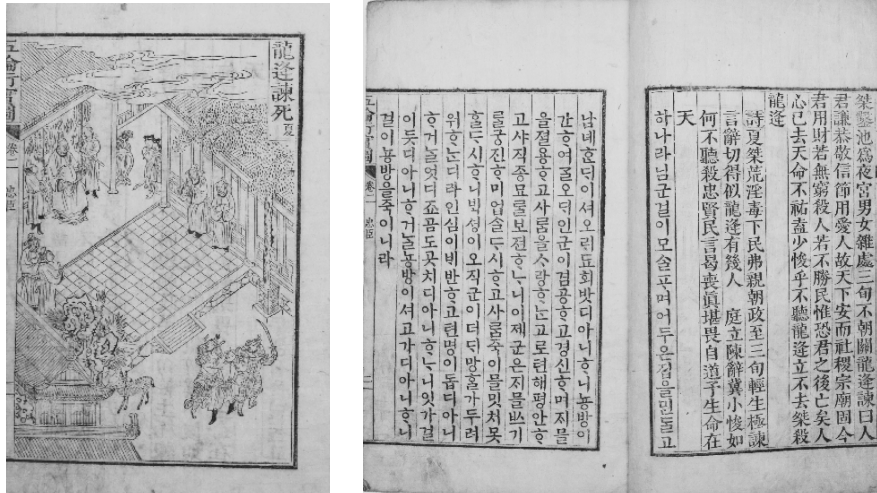 龍逢諫死 夏
五倫行實圖 卷二 忠臣
桀鑿池爲夜宮男女雜處三旬不朝關龍逢諫曰人
君謙恭敬信節用愛人故天下安而社稷宗廟固今
君用財若無窮殺人若不勝民惟恐君之後亡矣人
心已去天命不祐盍少悛乎不聽龍逢立不去桀殺
龍逢
詩夏桀荒淫毒下民弗親朝政至三旬輕生極諫
言辭切得似龍逢有幾人 庭立陳辭冀小悛如
何不聽殺忠賢民言曷喪眞堪畏自道予生命在
天
하나라님군걸이모슬ᄑᆞ며어두온집을ᄆᆡᆫᄃᆞᆯ고
남녜ᄒᆞᆫᄃᆡ이셔오리됴회밧디아니ᄒᆞ니뇽방이
간ᄒᆞ여ᄀᆞᆯ오ᄃᆡ인군이겸공ᄒᆞ고경신ᄒᆞ며ᄌᆡ믈
을졀용ᄒᆞ고사ᄅᆞᆷ을ᄉᆞ랑ᄒᆞᄂᆞᆫ고로텬해평안ᄒᆞ
고샤직종묘ᄅᆞᆯ보젼ᄒᆞᄂᆞ니이제군은ᄌᆡ믈ᄡᅳ기
ᄅᆞᆯ궁진ᄒᆞ미업슬ᄃᆞ시ᄒᆞ고사ᄅᆞᆷ죽이믈밋치못
ᄒᆞᆯᄃᆞ시ᄒᆞ니ᄇᆡᆨ셩이오직군이더ᄃᆡ망ᄒᆞᆯ가두려
위ᄒᆞᄂᆞᆫ디라인심이ᄇᆡ반ᄒᆞ고텬명이돕디아니
ᄒᆞ거ᄂᆞᆯ엇디죠곰도곳치디아니ᄒᆞᄂᆞ니잇가걸
이듯디아니ᄒᆞ거ᄂᆞᆯ뇽방이셔고가디아니ᄒᆞ니
걸이뇽방을죽이니라
五倫行實圖 卷二 忠臣 二